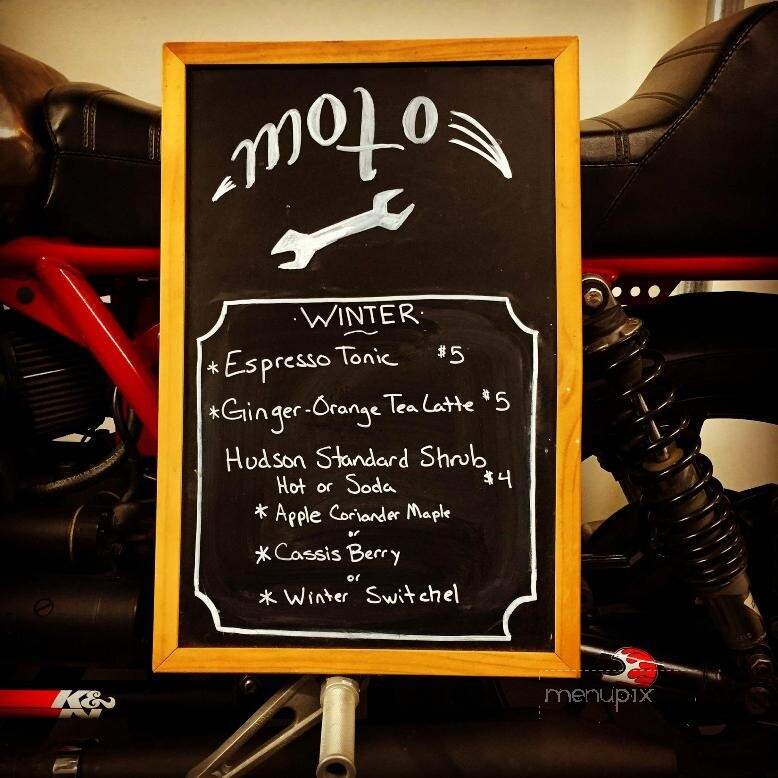 moto
·WINTER·
* Espresso Tonic $5
* Ginger-Orange Tea Latte $5
Hudson Standard Shrub
Hot or Soda $4
* Apple Coriander Maple
or
* Cassis Berry
or
* Winter Switchel
K&N
menupix